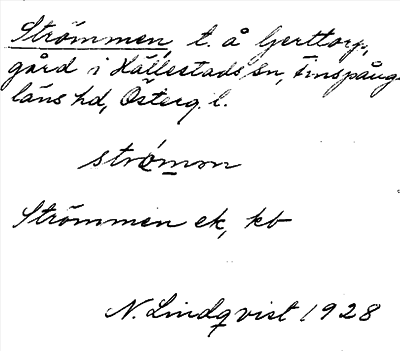 Strömmen, t. å Gjerttorp,
gård i Hällestads sn, Finspånga
läns hd, Österg. l.
strömən
Strömmen ek, kb
N. Lindqvist 1928